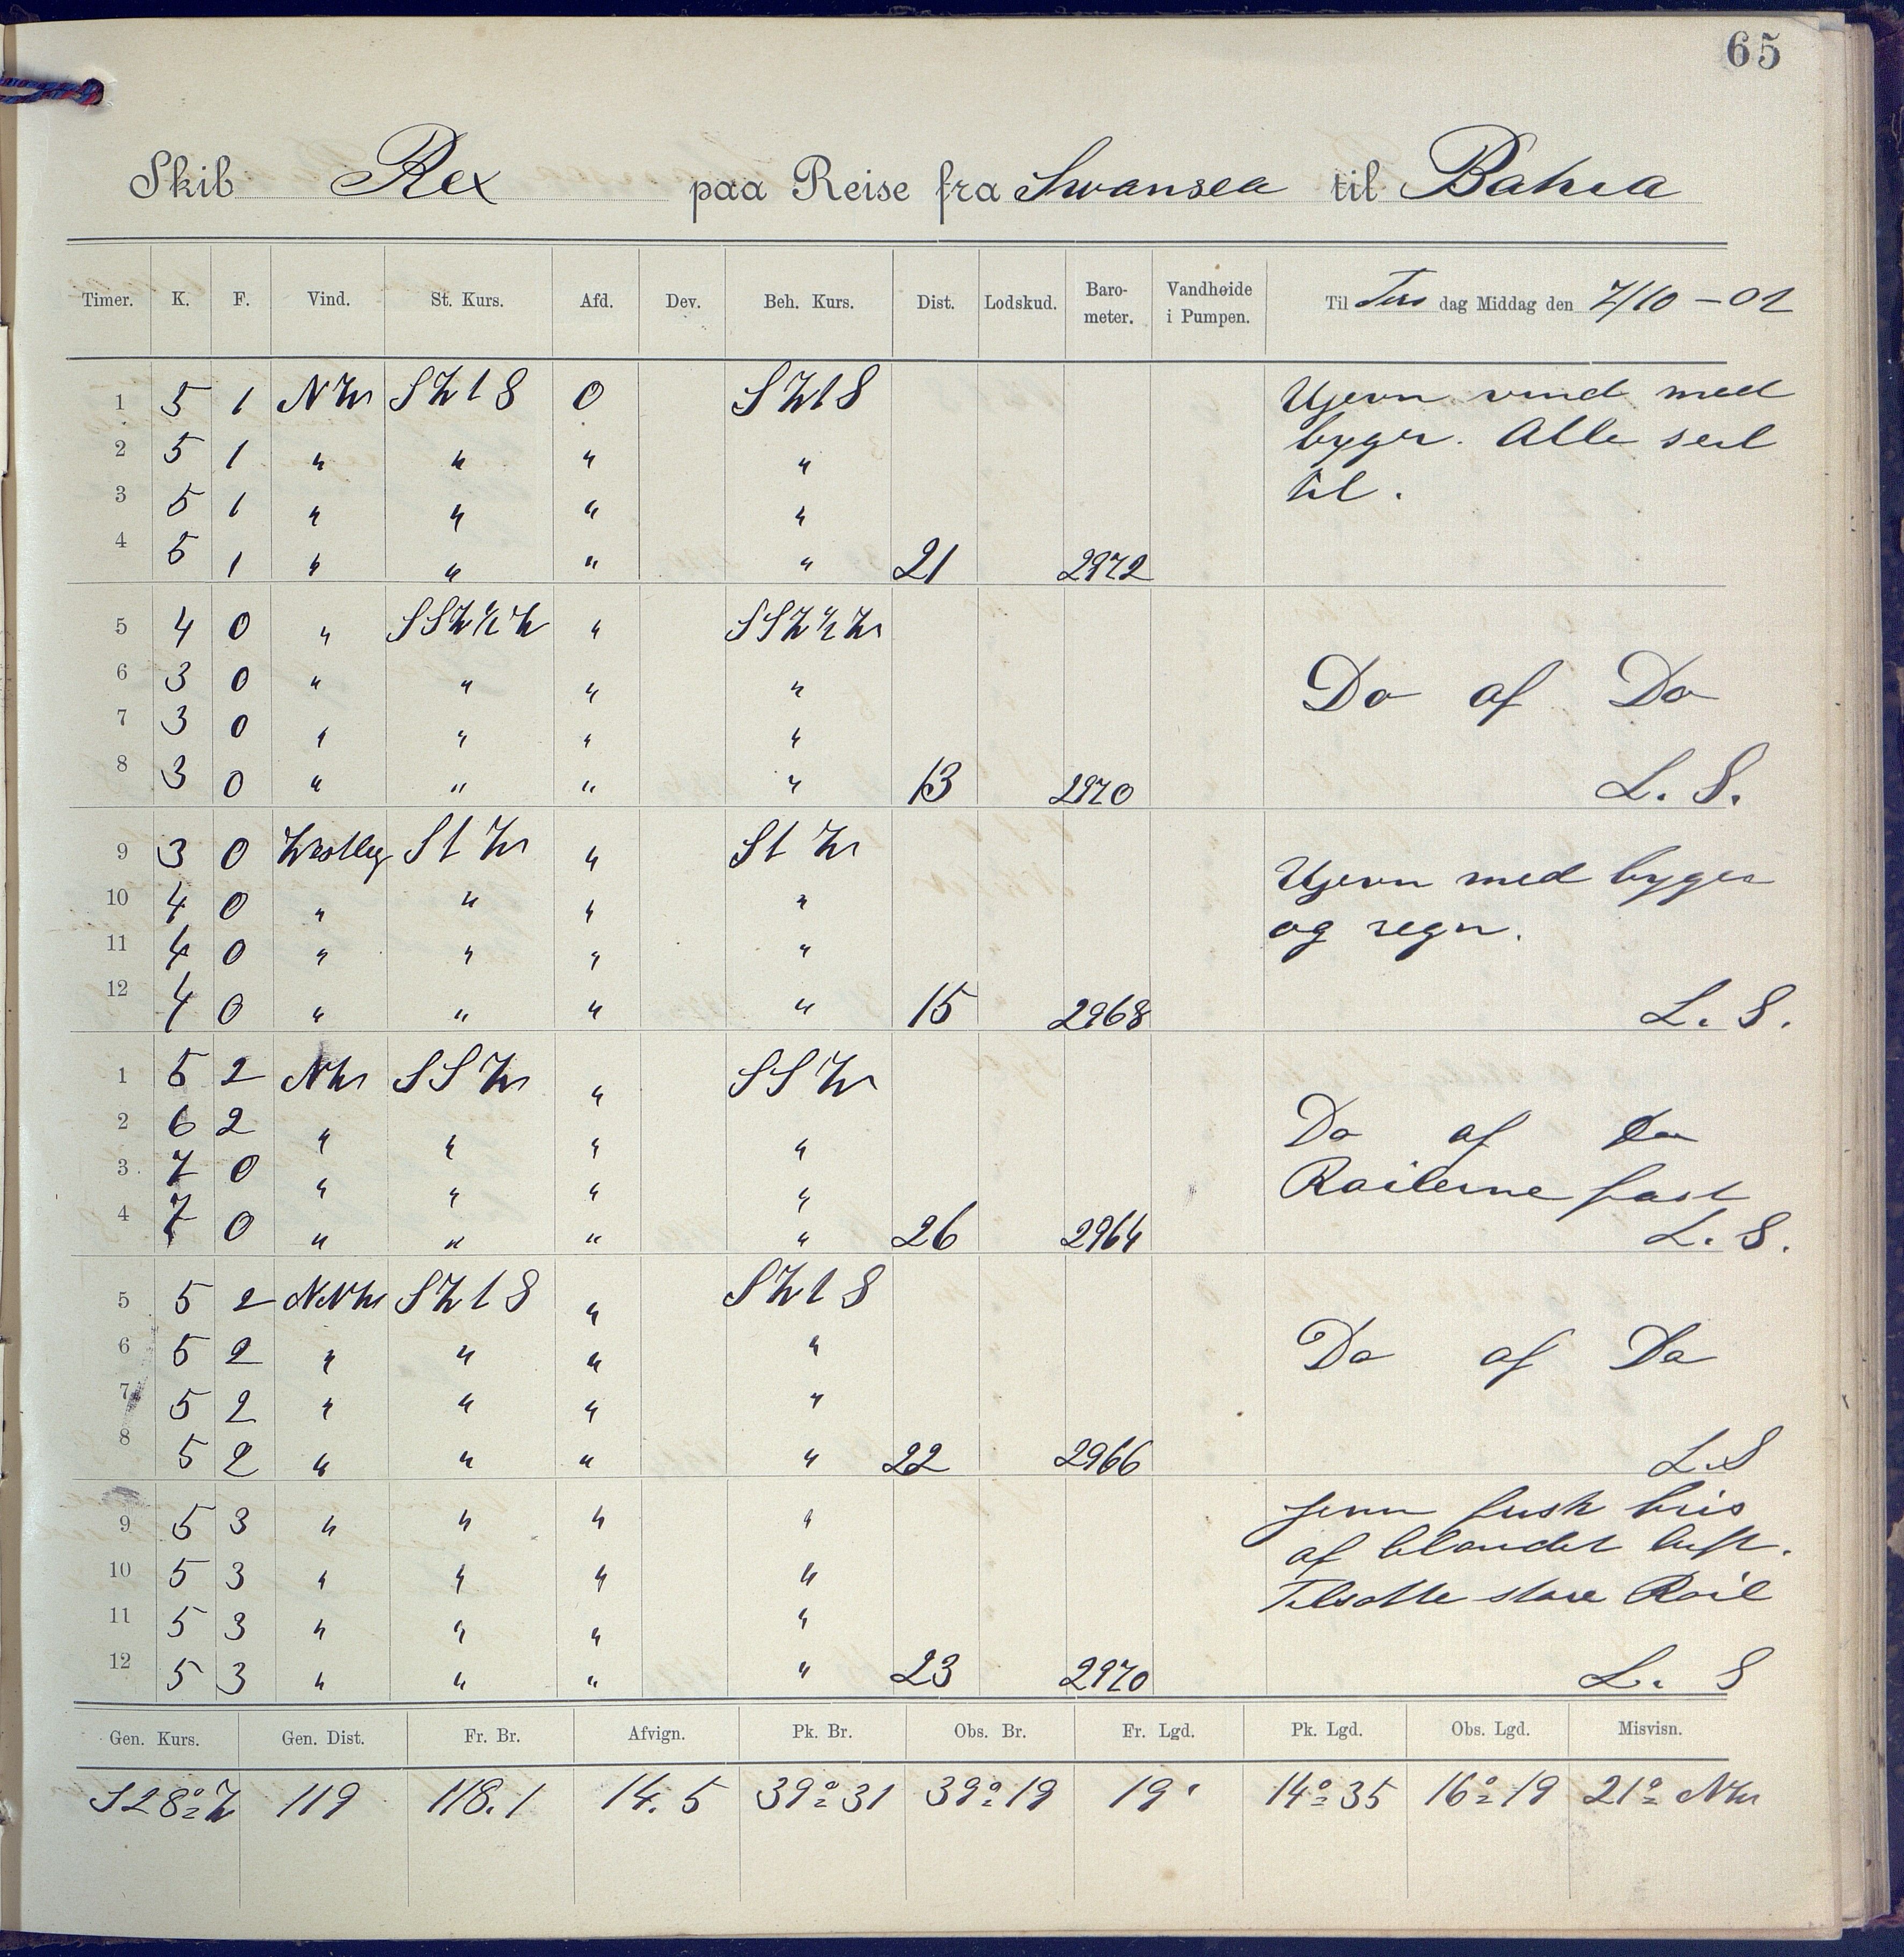 65
Skib Rex paa Reise fra Swansea til Bahia
Timer. K. F. Vind. St. Kurs. Afd. Dev. Beh. Kurs. Dist. Lodskud. Baro-meter. Vandhøide i Pumpen. Til Tirs dag Middag den 7/10 - 02
1 5 1 NW SW t S 0 SW t S Ujevn vind med
2 5 1 " " " " byger. Alle seil
3 5 1 " " " " til.
4 5 1 " " " " 21 2972
5 4 0 " SSW ½ W " SSW ½ W
6 3 0 " " " " Do af Do
7 3 0 " " " "
8 3 0 " " " " 13 2970 L. S.
9 3 0 Westleg S t W " S t W Ujevn med byger
10 4 0 " " " " og regn.
11 4 0 " " " "
12 4 0 " " " " 15 2968 L. S.
1 5 2 NW SSW " SSW
2 6 2 " " " " Do af Do
3 7 0 " " " " Roilerne fast
4 7 0 " " " " 26 2964 L. S.
5 5 2 NNW SW t S " SW t S
6 5 2 " " " " Do af Do
7 5 2 " " " "
8 5 2 " " " " 22 2966 L. S
9 5 3 " " " " Jevn frisk bris
af blandet luft.
10 5 3 " " " " Tilsatte store Roil
11 5 3 " " " "
12 5 3 " " " " 23 2970 L. S
Gen. Kurs. Gen. Dist. Fr. Br. Afvign. Pk. Br. Obs. Br. Fr. Lgd. Pk. Lgd. Obs. Lgd. Misvisn.
S 28° W 119 118.1 14.5 39° 31 39° 19 19' 14° 35 16° 19 21° NW